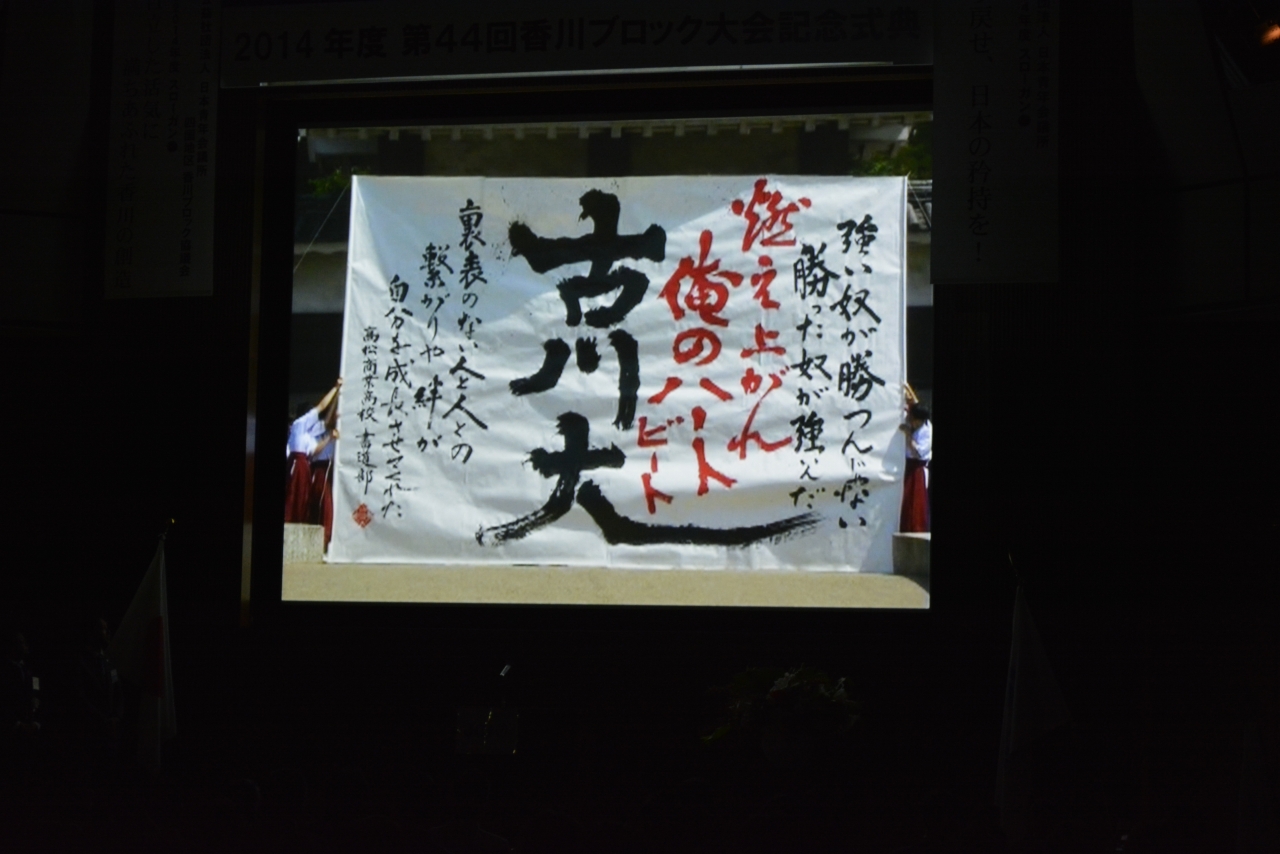 2014年度 第44回香川ブロック大会記念式典
強い奴が勝つんじゃない
勝った奴が強いんだ
燃え上がれ
俺のハート
ビート
古川大
裏表のない人と人との
繋がりや 絆が
自分を成長させてくれた
高松商業高校 書道部
戻せ、日本の矜持を!